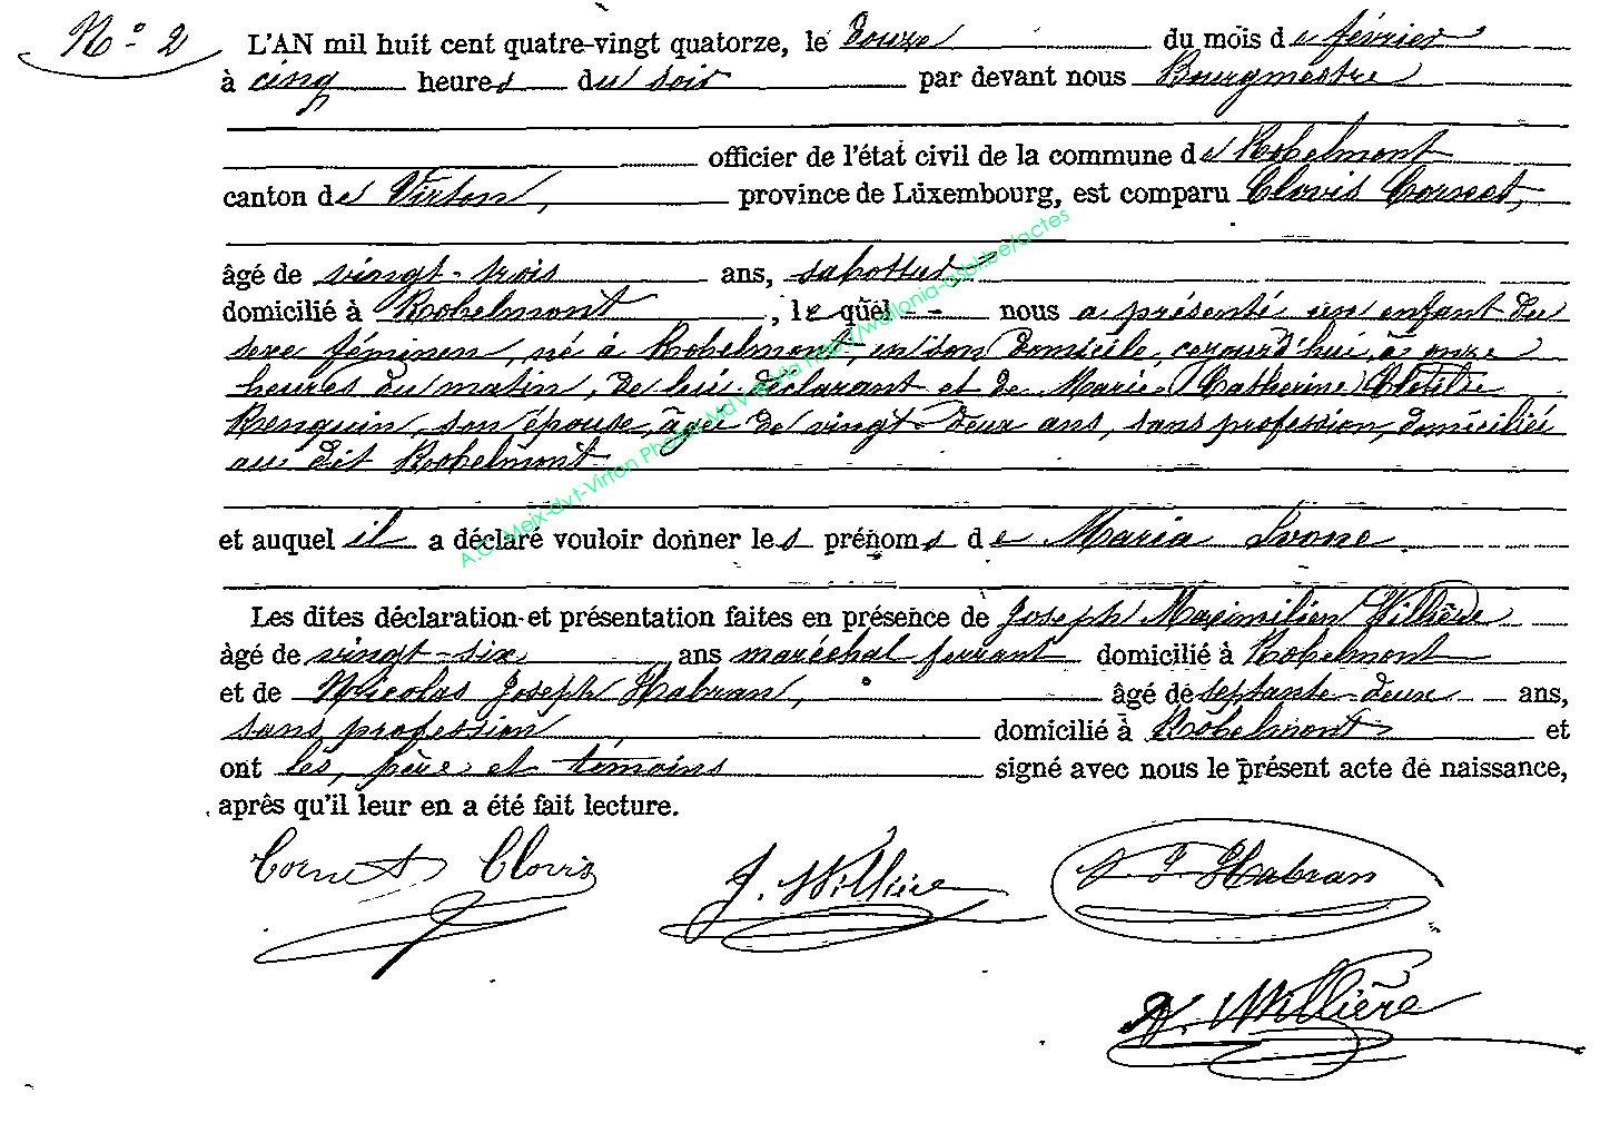 N° 2
L'AN mil huit cent quatre-vingt quatorze, le douze du mois de février
à cinq heures du soir par devant nous Bourgmestre
officier de l'état civil de la commune de Robelmont
canton de Virton, province de Luxembourg, est comparu Clovis Cornet,
âgé de vingt-trois ans, sabottier
domicilié à Robelmont, le quel nous a présenté un enfant du
sexe féminin, né à Robelmont, en son domicile, cejourd'hui, à onze
heures du matin, de lui déclarant et de Marie Catherine Clotilde
Renquin, son épouse, âgée de vingt-deux ans, sans profession, domiciliée
au dit Robelmont
et auquel il a déclaré vouloir donner les prénoms de Maria Ivone.
Les dites déclaration et présentation faites en présence de Joseph Maximilien Willière
âgé de vingt-six ans maréchal ferrant domicilié à Robelmont
et de Nicolas Joseph Habran, âgé de septante-deux ans,
sans profession domicilié à Robelmont et
ont les, père et témoins signé avec nous le présent acte de naissance,
après qu'il leur en a été fait lecture.
Cornet Clovis J. Willière N J Habran
N. Willière
A.C. Meix-dvt-Virton Photos MdV via http://wallonia-asbl.be/actes